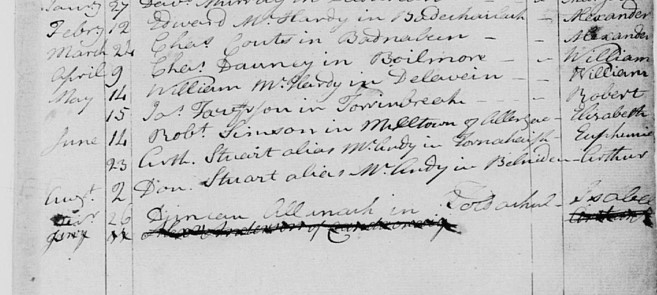 27 Murray in
Febry 12 Edward McHardy in Badechailach - - Alexander
March 24 Chas. Couts in Badnaken - - Alexander
April 9 Chas. Dauney in Boilmore - - William
May 14 William McHardy in Delavein - - William
15 Jas. in Torrinbreak - - Robert
June 14 Robt. Simson in Milltown of - Elizabeth
23 Arth. Stuart alias McAndy in Tornahaish - Euphemia
Augt. 2 Don. Stuart alias McAndy in - Arthur
26 Duncan in - Isabel